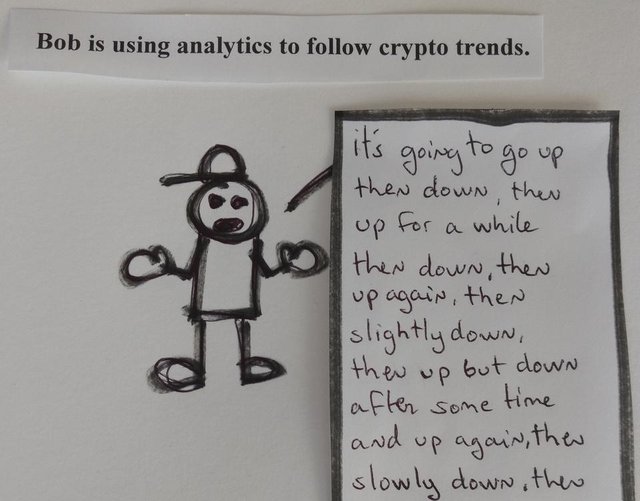 Bob is using analytics to follow crypto trends.
it's going to go up
then down, then
up for a while
then down, then
up again, then
slightly down,
then up but down
after some time
and up again, then
slowly down, then